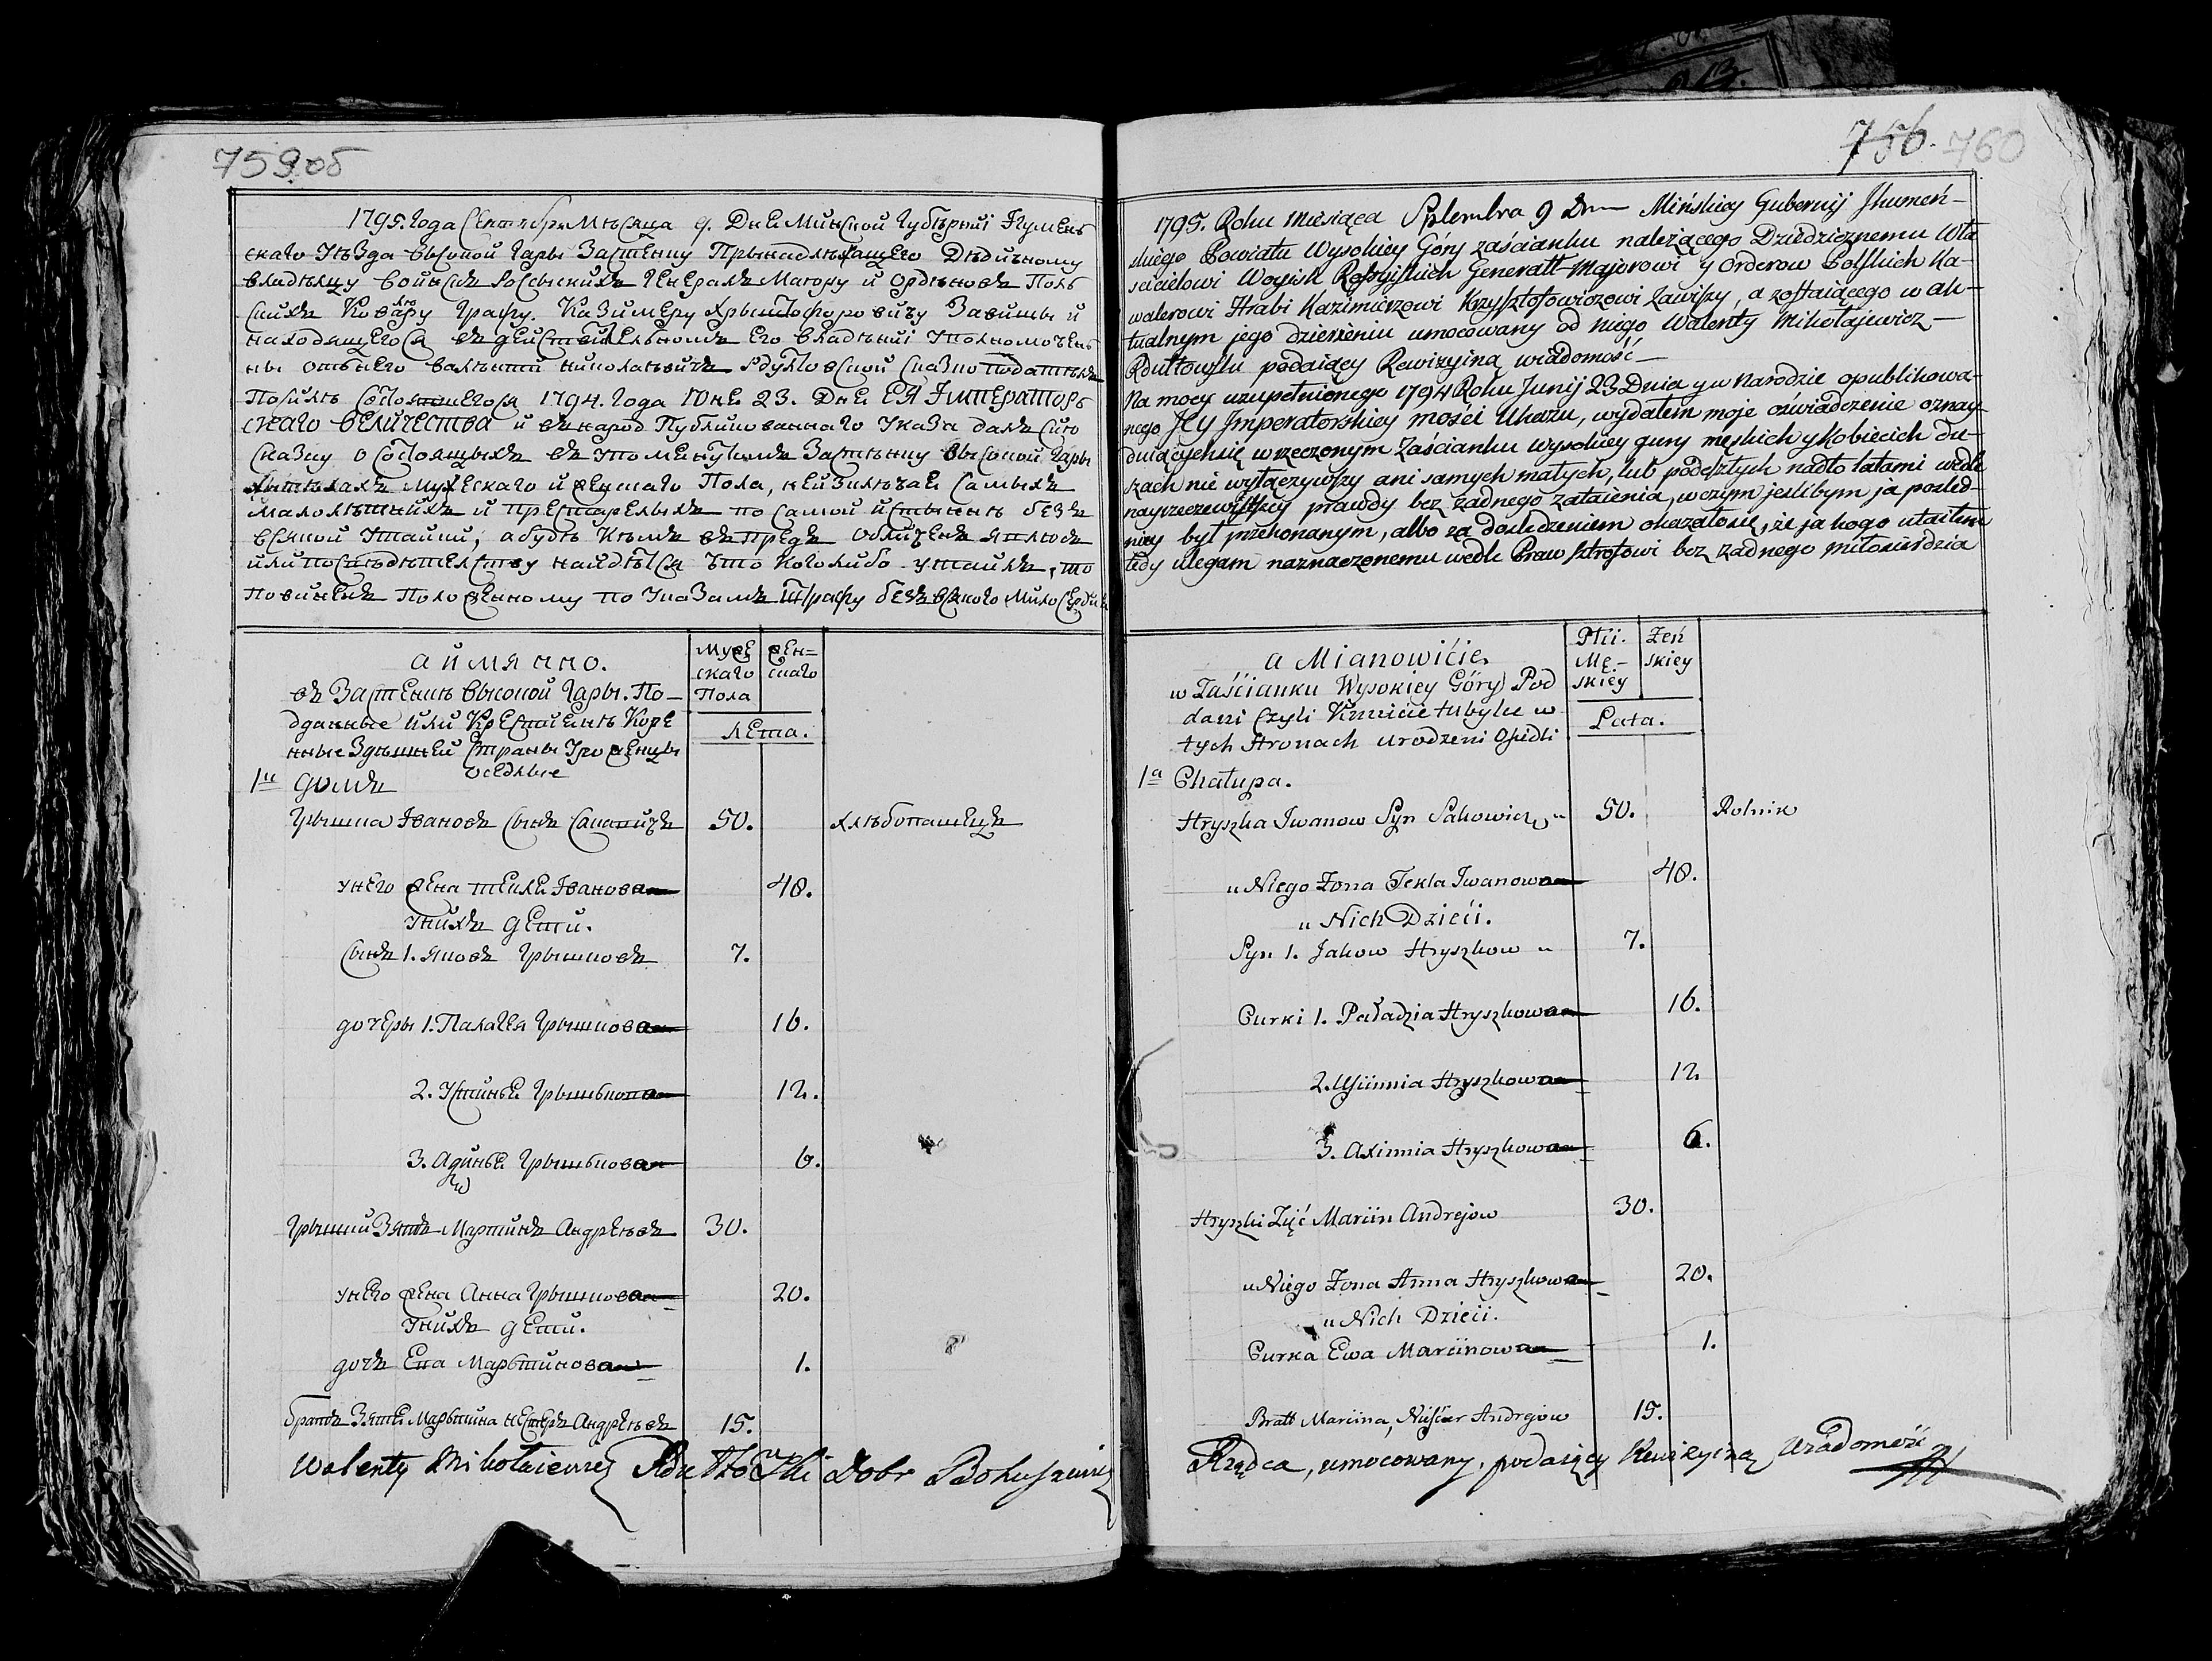 759об
1795. Года Сентября Мѣсяца 9. Дня Минской Губѣрніи Ігумень
скаго Уѣзда высокой Гары Застѣнку Прынадлѣжащего Дѣдичному
владѣлцу войнскъ Россыскихъ Генералъ Маіору и Ордѣновъ Поль
скихъ Ковалѣру Графу. Казимеру Хрыштофоровичу Завишы и
находящегося въ дѣйствительномъ Его владѣніи Уполномочен
ны отъ нѣго валѣнти николаѣвичъ Рдултовской сказко податѣль
Посилѣ состоявшегося 1794. Года Юня 23. Дня ЕЯ Императорь
скаго вЕличества и въ народ Публикованнаго Указа далъ сию
сказку о состоящыхъ въ упомянутомъ Застѣнку высокой Гары
жытѣлахъ мужескаго и женскаго Пола, нейзключая самыхъ
малолѣтнихъ и прЕстарелыхъ по самой истыннѣ безъ
всякой Утайки, абудѣ кѣмъ въ прѣдъ обличенъ явлюсь
или по слѣдѣтелству найдѣтся что кого либо утаилъ, то
повинѣнъ положЕнному по Указамъ Штрафу безъ всякого Милосердия
аимянно.
въ Застѣнкѣ высокой Гары. По-
дданные или КрЕстиянѣ Коре
нные Здѣшнѣй Страны Урожѣнцы
осЕдлые
Муже
скаго
Пола
жен=
скаго
лЕта.
1й домъ
Грышка Івановъ сынъ Сакавичъ 50. хлѣбопашецъ
у нЕго жена текля Іванова 48.
у нихъ дЕти.
сынъ 1. Яковъ Грышковъ 7.
дочеры 1. Палагея Грышкова 16.
2. Устинья Грышькова 12.
3. Адинья Грышькова 6.
Грышки Зять Мартинъ Андреѣвъ 30.
у нЕго жена Анна Грышкова 20.
у нихъ дЕти.
дочь Ева Мартинова 1.
братъ Зятя Мартина нЕстеръ Андрѣевъ 15.
Walenty Mikołaiewicz Rdułtowski Dobr Bohuszewicz
756. 760
1795. Roku Miesiąca Septembra 9 Dnia Mińskiey Gubernij Jhumeń-
skiego Powiatu Wysokiey Góry zaścianku należącego Dziedzicznemu Wła
scicielowi Woysk Rossyiskich Generał-Majorowi y Orderow Polskich Ka-
walerowi Hrabi Kazimierzowi Krzysztofowiczowi Zawiszy, a zostaiącego w ak-
tualnym jego dzierżeniu umocowany od niego Walenty Mikołajewicz
Rdułtowski podaiący Rewizyiną wiadomość
Na mocy uzupełnionego 1794 Roku Junij 23 Dnia y w Narodzie opublikowa-
nego JEy Jmperatorskiey mości Ukazu, wydałem moje oświadczenie oznay-
duiącychsię w rzeczonym Zaścianku Wysokiey gury męskich y Kobiecich du-
szach nie wyłączywszy ani samych małych, lub podeszłych nadto latami wedle
nayrzeczewistszey prawdy bez żadnego zataienia, w czym jeślibym ja posled-
niey był przekonanym, albo za dosledzeniem okazałosię, że ja kogo utaiłem
tedy ulegam naznaczonemu wedle Praw sztrofowi bez żadnego miłosierdzia
a Mianowićie.
w Zaścianku Wysokiey Góry Pod
dani Czyli Kmiecie tubylce w
tych Stronach urodzeni Osiedli
Płci.
Mę-
skiey
Żeń
skiey
Lata.
1a Chałupa.
Hryszka Jwanow Syn Sakowicz 50. Rolnik
u Niego Żona Tekla Jwanowa 48.
u Nich Dzieći.
Syn 1. Jakow Hryszkow 7.
Curki 1. Paładzia Hryszkowa 16.
2. Uściinnia Hryszkowa 12
3. Axinnia Hryszkowa 6.
Hryszki Zięć Marcin Andrejow 30.
u Niego Żona Anna Hryszkowa 20.
u Nich Dzieci.
Curka Ewa Marcinowa 1.
Bratt Marcina, Nieścier Andrejow 15.
Rządca, umocowany, podaiący Rewizyiną Wiadomość